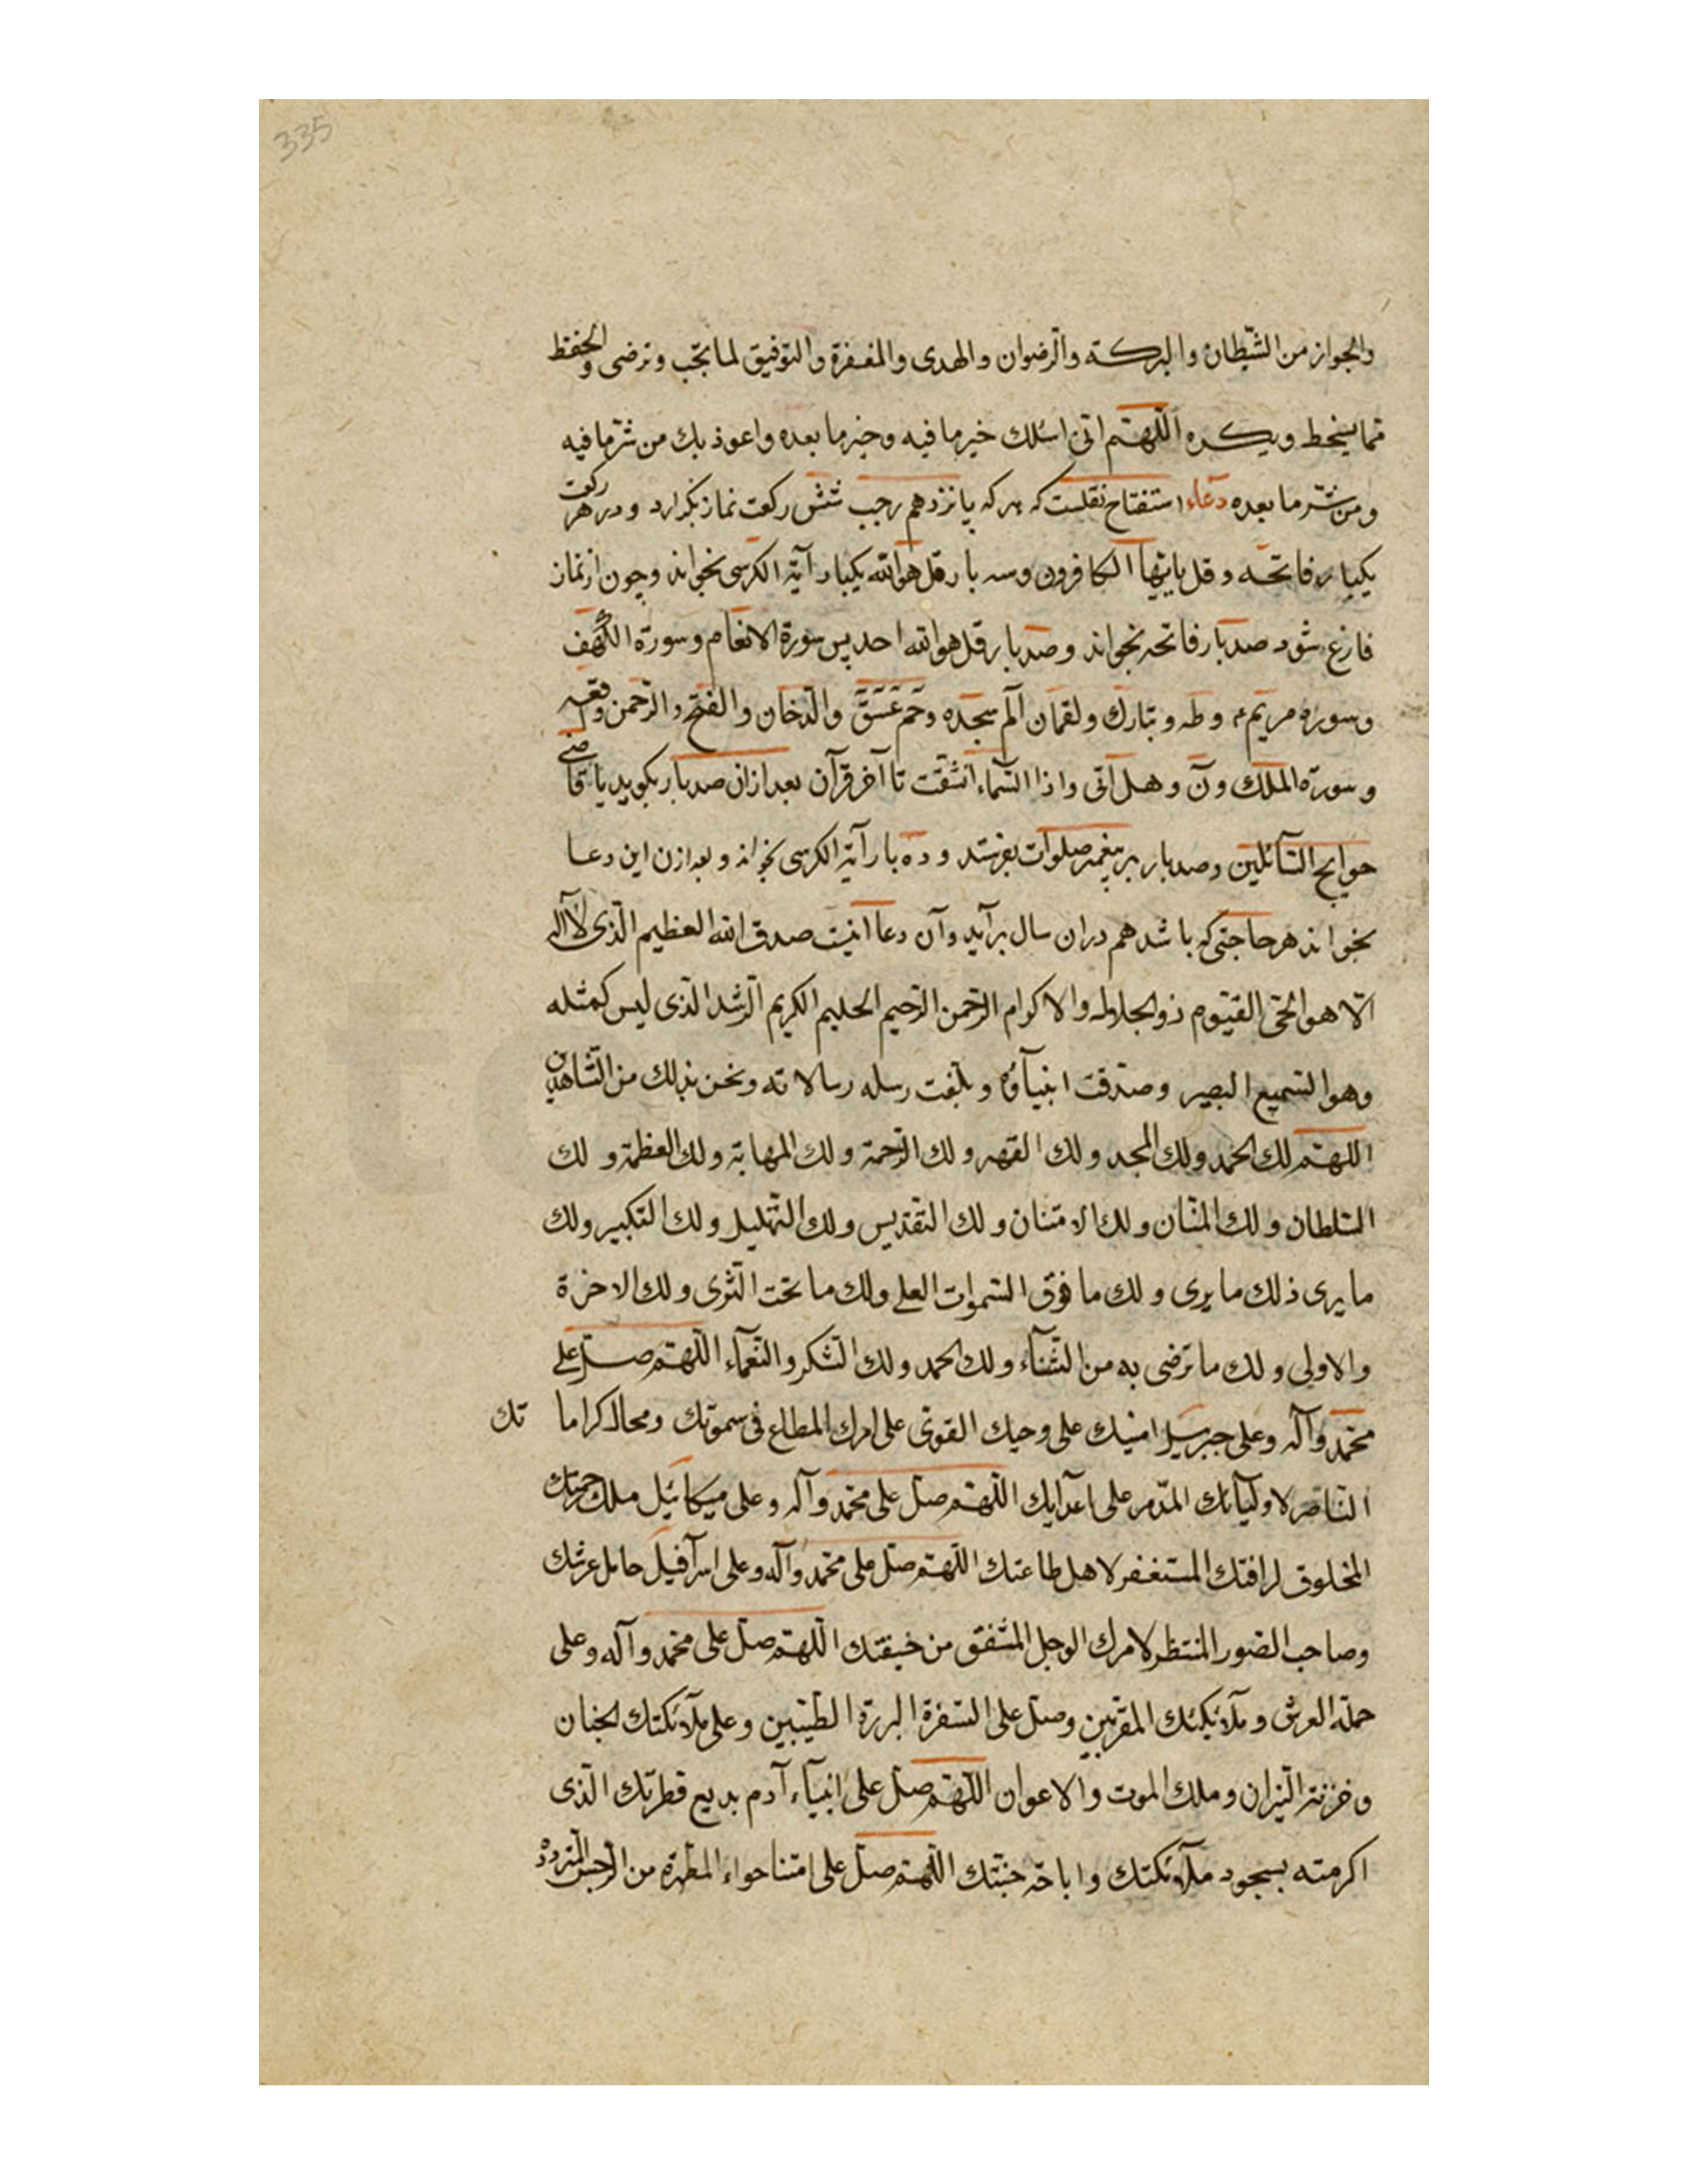 335
والجواز من الشّيطان والبركة والرّضوان والهدى والمغفرة والتّوفيق لما تحّب وترضى والحفظ
ممّا يسخط ويكره اللّهمّ انّى اسئلك خير ما فيه وخير ما بعده واعوذ بك من شرّ ما فيه
ومن شرّ ما بعده دعاء استفتاح نقلست كه هر كه پانزدهم رجب شش ركعت نماز بگذارد ودر هر ركعت
يكبار فاتحه وقل ياايّها الكافرون وسه بار قل هو الله يكبار آية الكرسى بخواند وچون از نماز
فارغ شود صد بار فاتحه بخواند وصد بار قل هو الله احد پس سورة الانعام وسورة الكهف
وسوره مريم وطه وتبارك ولقمان الم سجده وحم عسق والدّخان والفتح والرّحمن وقعه
وسورة الملك ون وهل اتى واذا السّماء انشقّت تا آخر قرآن بعد ازان صد بار بگويد يا قاضى
حوايج السّائلين وصد بار بر پيغمبر صلوات بفرستد وده بار آية الكرسى بخواند وبعد ازن اين دعا
بخواند هر حاجتى كه باشد هم دران سال برآيد وآن دعا اينست صدق الله العظيم الّذى لا اله
الّا هو الحىّ القيّوم ذو الجلال والاكرام الرّحمن الرّحيم الحليم الكريم الّذى ليس كمثله
وهو السّميع البصير وصدّقت انبيآؤه وبلّغت رسله رسالاته ونحن بذلك من الشّاهدين
اللهمّ لك الحمد ولك المجد ولك القهر ولك الرّحمة ولك المهابة ولك العظمة ولك
السّلطان ولك المنّان ولك الامتنان ولك التّقديس ولك التّهليل ولك التّكبير ولك
ما يرى ذلك ما يرى ولك ما فوق السّموات العلى ولك ما تحت الثّرى ولك الاخرة
والاولى ولك ما ترضى به من الثّنآء ولك الحمد ولك الشّكر والنّعمآء اللّهمّ صلّ على
محمّد وآله وعلى جبرئيل امينك على وحيك القوىّ على امرك المطاع فى سموتك ومحال كراما تك
النّاصر لاوليآئك المدّمر على اعدآيك اللّهمّ صلّ على محمّد وآله وعلى ميكائيل ملك رحمتك
المخلوق لرافتك المستغفر لاهل طاعتك اللّهمّ صلّ على محمّد وآله وعلى اسرآفيل حامل عرشك
وصاحب الصّور المنتظر لامرك الوجل المشفق من خيفتك اللّهمّ صلّ على محمّد وآله وعلى
حملة العرش وملآئكتك المقرّبين وصلّ على السّفرة البررة الطّيّبين وعلى ملآئكتك الجنان
وخزنة النّيران وملك الموت والاعوان اللّهمّ صلّ على انبيآء آدم بديع فطرتك الّذى
اكرمته بسجود ملآئكتك واباحة جنّتك اللّهمّ صلّ على امّنا حواء المطهرة من الرّجس